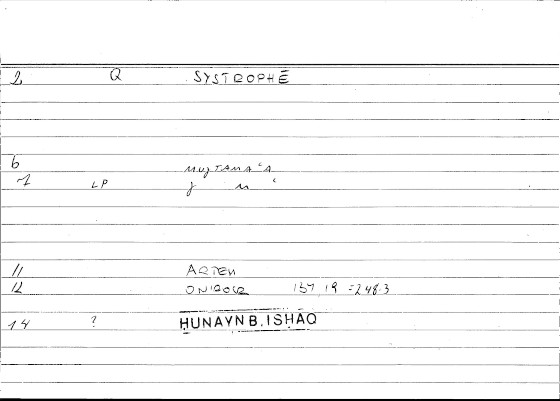 2 Q SYSTROPHĒ
6 MUJTAMAʿA
7 LP J M ʿ
11 ARTEM
12 ONIROCR 157,19 =248.3
14 ? HUNAYN B. ISHAQ